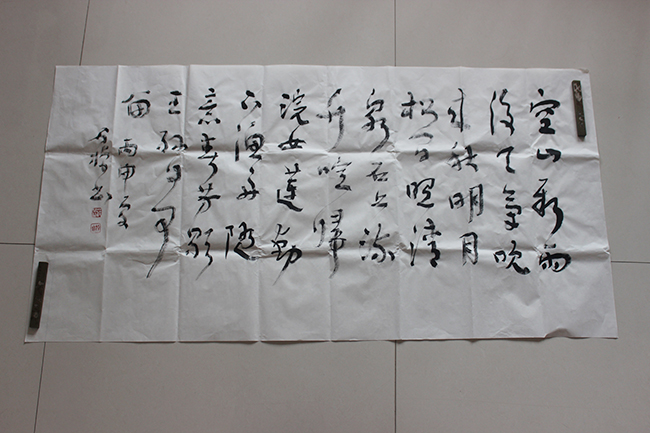 空山新雨
後天氣晚
来秋明月
松间照清
泉石上流
竹喧歸
浣女蓮動
下漁舟隨
意春芳歇
王孫自可
留 丙申
书